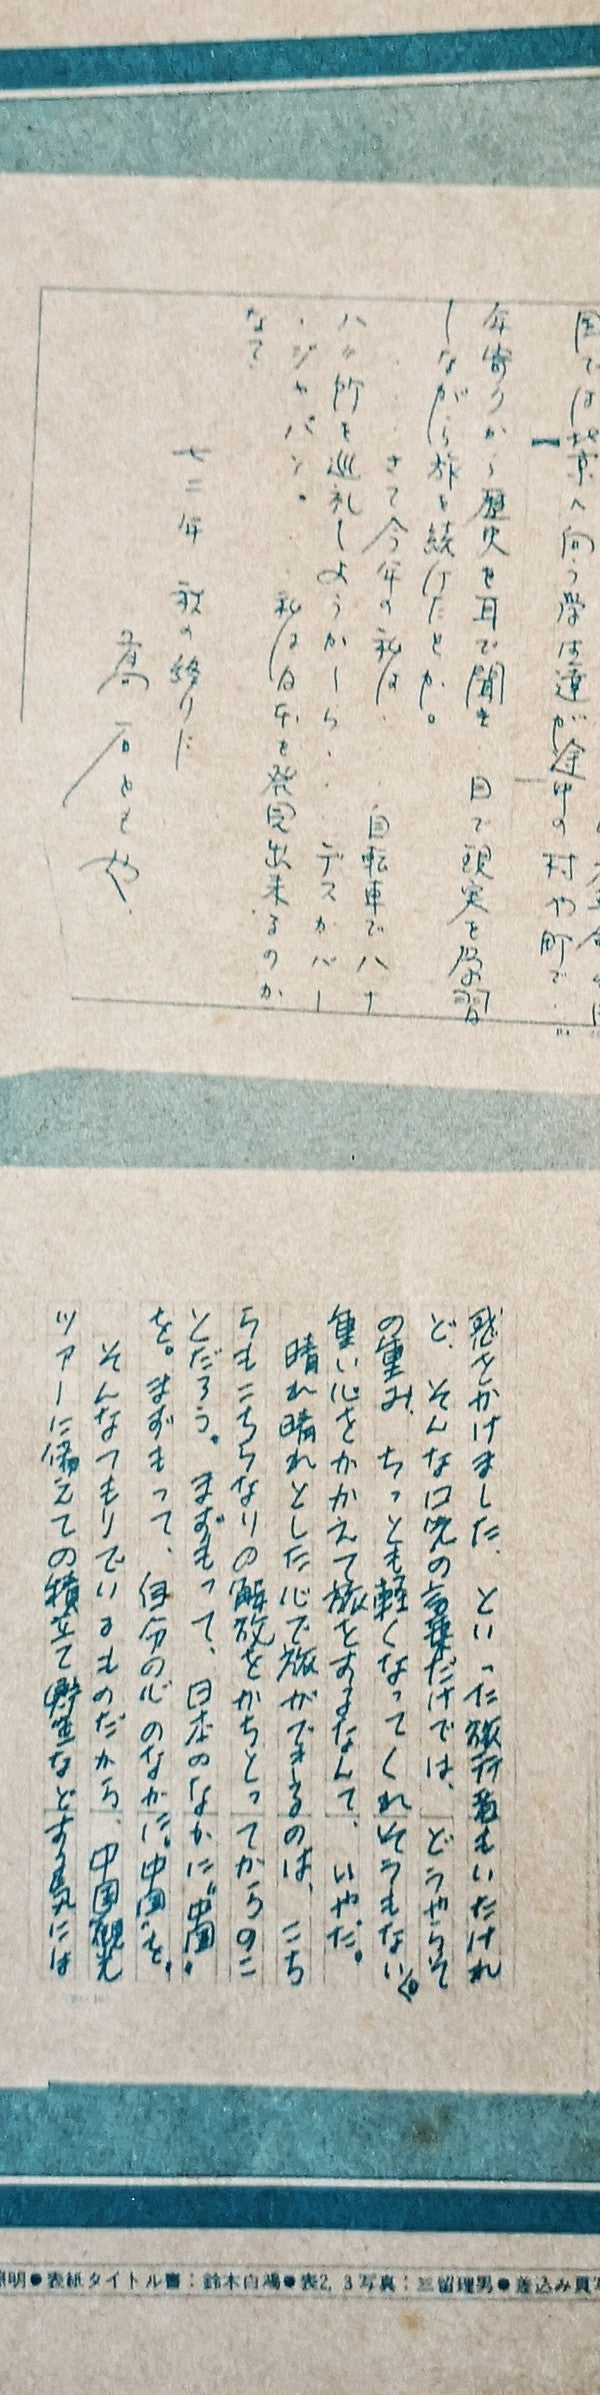 国では北京へ向う学生達が途中の村や町で…
年寄りから歴史を耳で聞き 目で現実を学習
しながら旅を続けたとか。
・・・さて今年の私は・ 自転車で八十
八ヶ所を巡礼しようかしら・・・デスカバー
・ジャパン。・・私は日本を発見出来るのか
なて・
七二年 秋の終りに
高石ともや
惑をかけました、といった旅行者もいたけれ
ど、そんな口先の言葉だけでは、どうやらそ
の重み、ちっとも軽くなってくれそうもない。
重い心をかかえて旅をするなんて、いやだ。
晴れ晴れとした心で旅ができるのは、こち
らもこちらなりの解放をかちとってからのこ
とだろう。まずもって、日本のなかに“中国”
を。まずもって、自分の心のなかに“中国”を。
そんなつもりでいるものだから、中国観光
ツアーに備えての積立て貯金などする気には
照明●表紙タイトル書：鈴木白鴻●表2，3写真：三留理男●差込み頁写